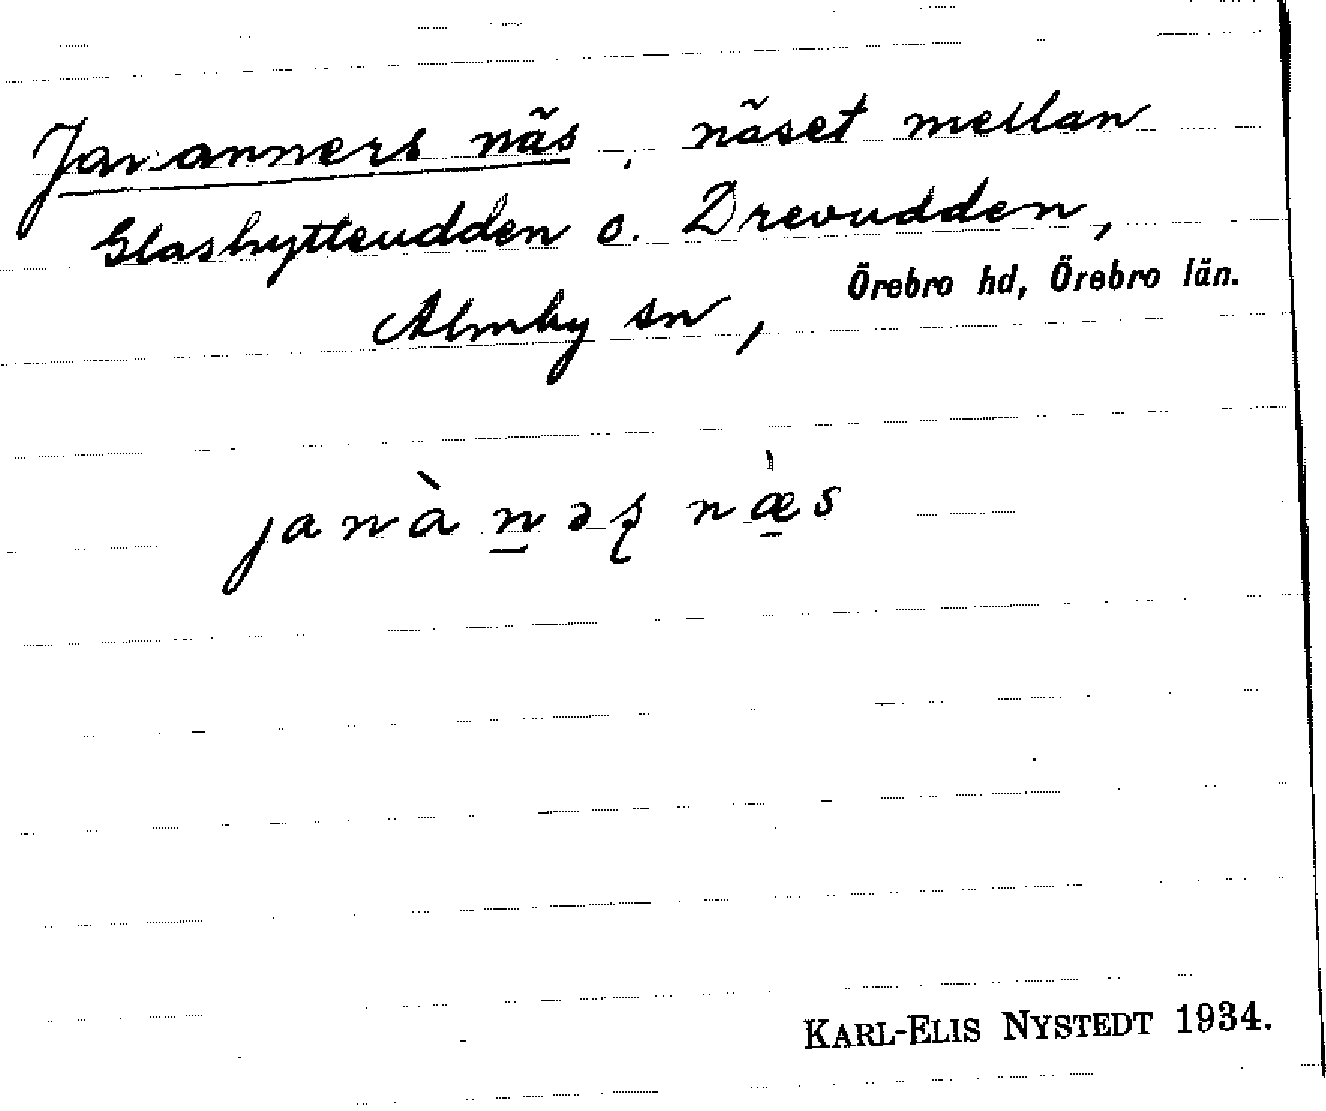 Jan anners näs, näset mellan
Glashytteudden o. Drevudden,
Almby sn, Örebro hd, Örebro län.
janànəʂ næ̀s
KARL-ELIS NYSTEDT 1934.